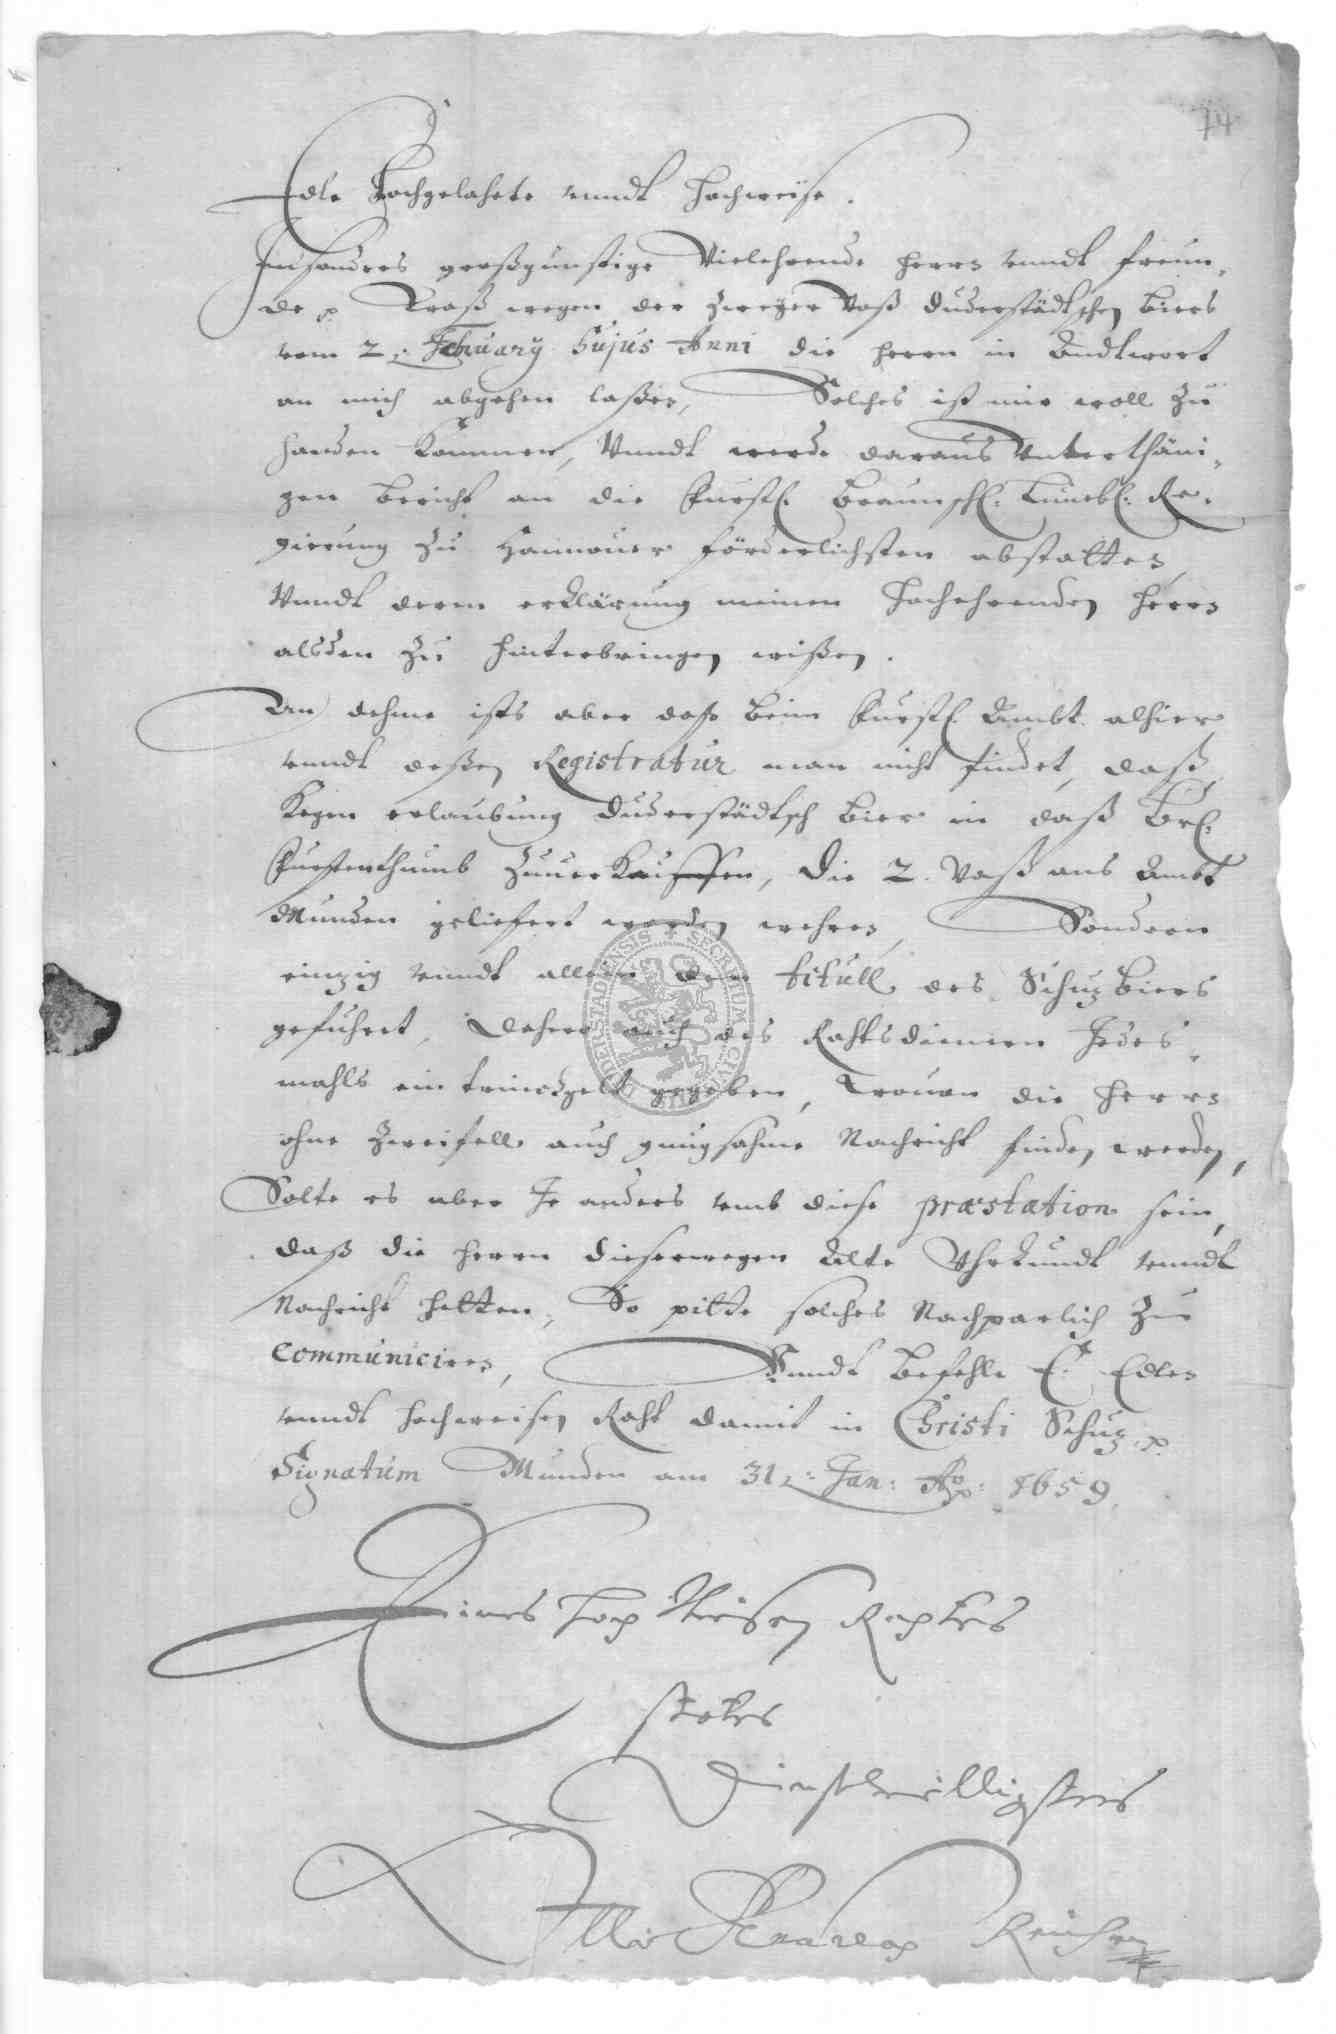 74
Edle Hochgelahrte unndt Hochweise.
Insonders großgunstige Vielehrende Herrn unndt freun-
de p. Waß wegen der zweyer Vaß Duderstädtschen Biers
vom 2. February hujus Anni die Herrn in Andtwort
an mich abgehen laßen, Solches ist mir woll zu
handen kommen, Unndt werde daraus Unterthäni-
gen Bericht an die Furstl. Braunschl. Lünebl. Re-
gierung zu Hannover förderlichsten abstatten,
Unndt deren erklärung meinen Hochehrenden Herrn
alsden zu hinterbringen wißen.
An dehme ists aber daß beim Furstl. Ambt alhier
unndt deßen Registratur man nicht findet, daß
kegen erlaubung Duderstädtsch Bier in daß Br.
Furstenthumb zuuerkauffen, die 2. Vaß ans Ambt
Munden geliefert worden wehren, Sondern
einzig unndt allein den titull des Schuz Biers
gefuhret, daher auch des Rahtsdienern Jedes-
mahls ein trinckgelt gegeben, Wouon die Herrn
ohne Zweifell auch gnugsahme Nachricht finden werden,
Solte es aber Je anders umb diese præstation sein,
daß die Herrn dieserwegen Alte Uhrkundt unndt
Nachricht hetten, So pitte solches Nachparlich zu
communiciren, Unndt befehle E. Edlen
unndt Hochweisen Raht damit in Christi Schuz p.
Signatum Munden am 31. Jan: Ao: 1659.
Eines Hoch Weisen Rahtes
stets
Dienstwilligster